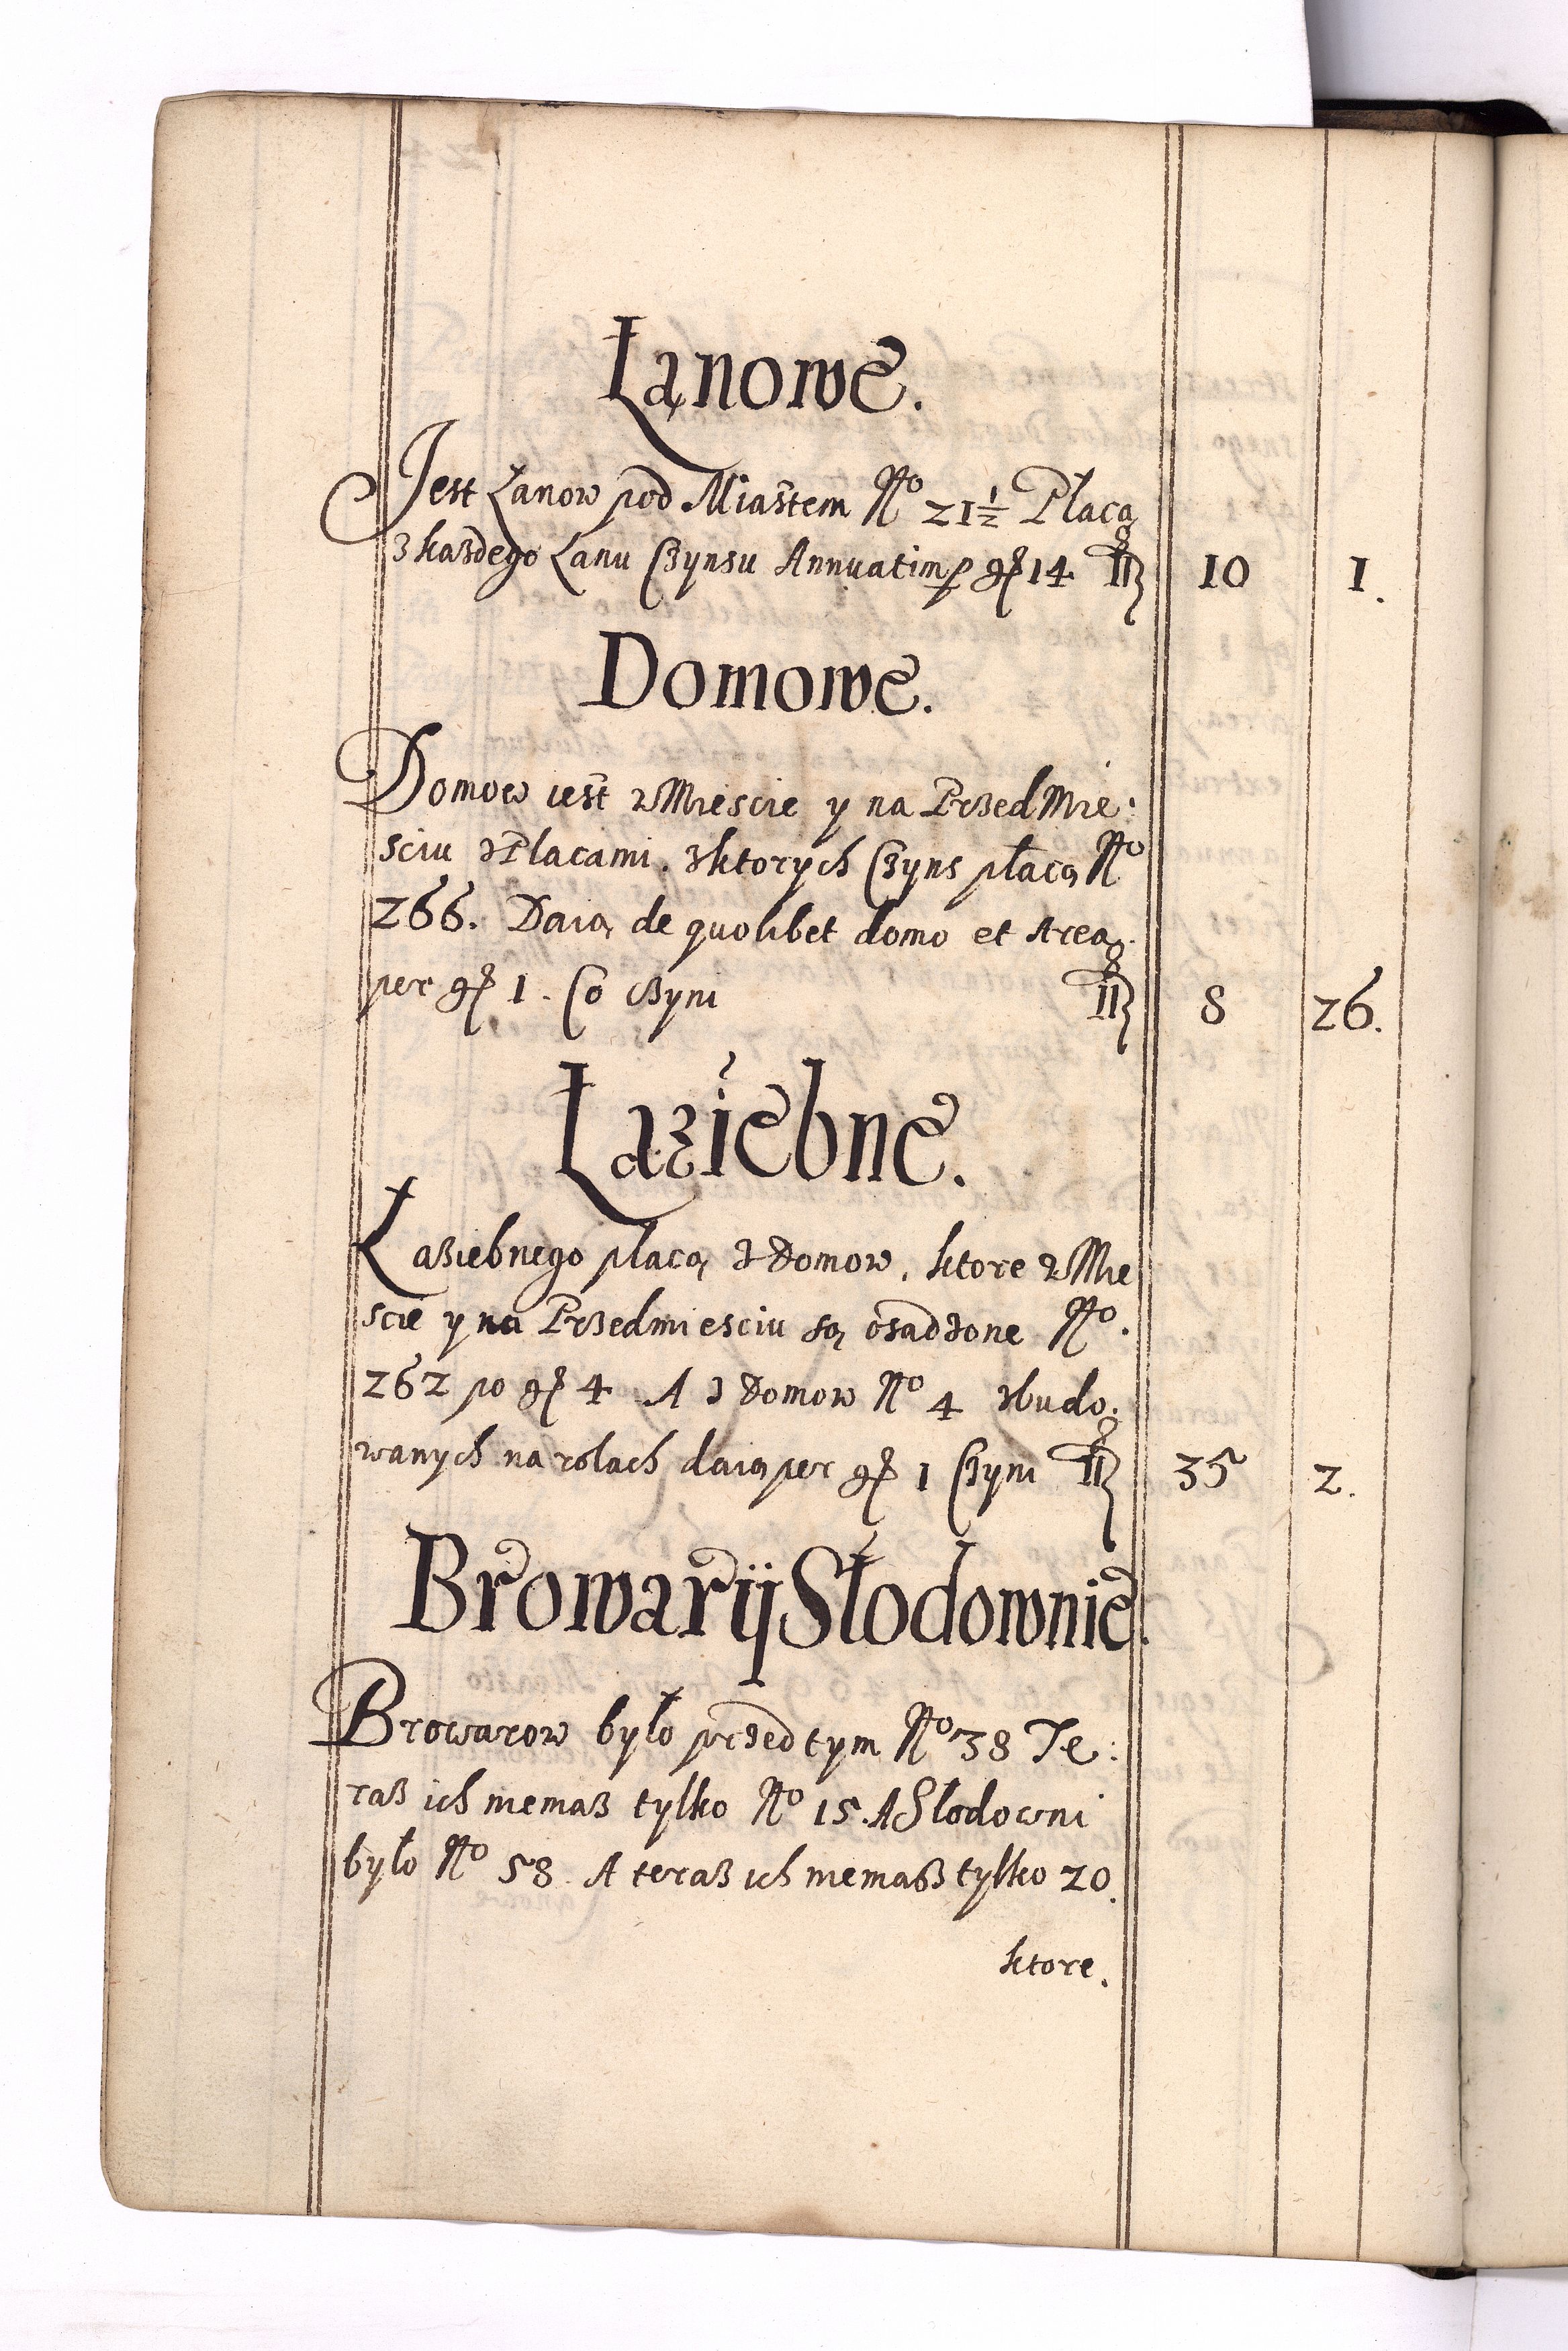 Łanowe.
Jest Łanow pod Miastem No 21 1/2 Płacą
z kazdego Łanu Czynsu Annuatim p gr 14 fl 10 1.
Domowe.
Domow iest w Miescie y na PrzedMie:
sciu z Placami. z ktorych Czyns płacą No
266. Daią de quolibet domo et Area
per gr 1. Co czyni fl 8 26.
Łaziebne.
Łaziebnego płacą z Domow, ktore w Mie
scie y na Przedmiesciu są osadzone No.
262 po gr 4 A z Domow No 4 zbudo:
wanych na rolach daią per gr 1 Czyni fl 35 2.
Browary y Słodownie.
Browarow było przed tym No 38 Te:
raz ich niemasz tylko No 15. A Słodowni
było No 58 A teraz ich niemasz tylko 20.
ktore.